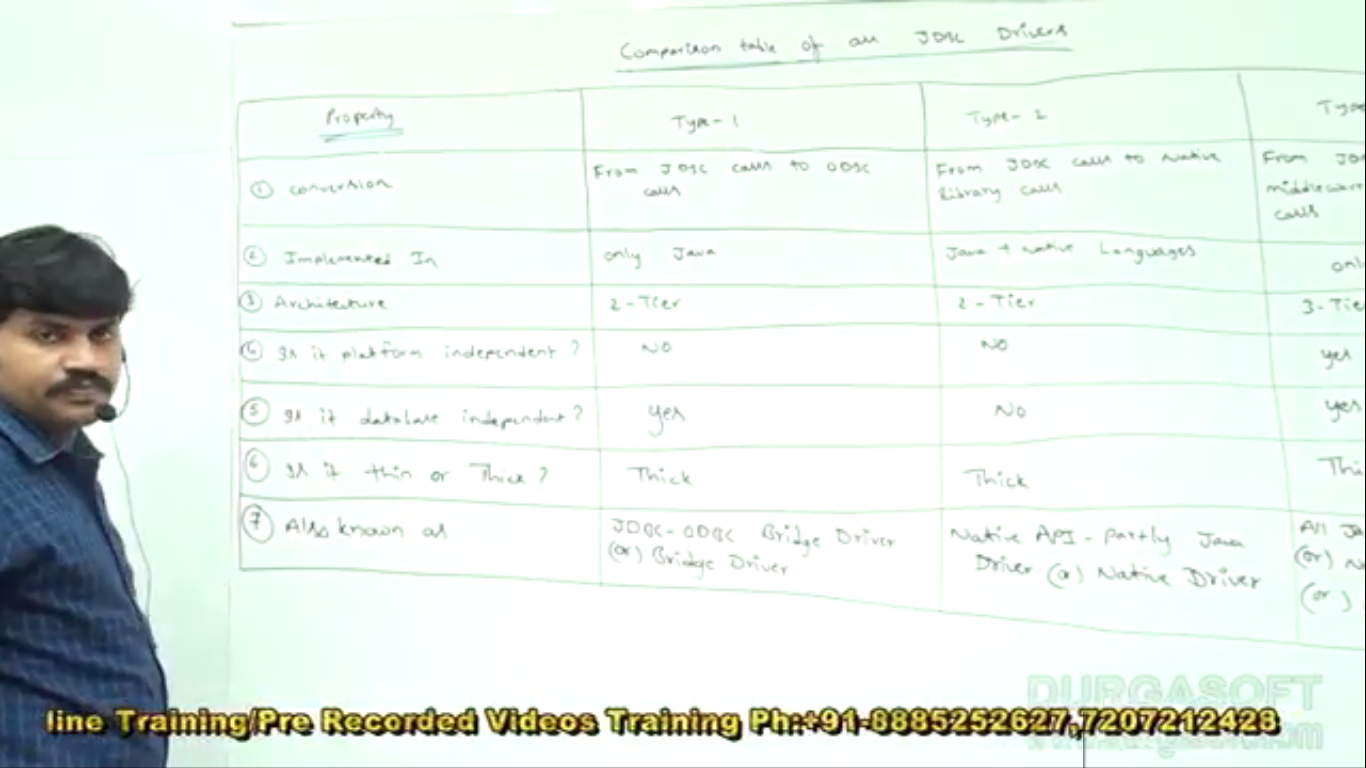 Comparison table of all JDBC Drivers
Property
Type-1
Type-2
Type
① Conversion
From JDBC calls to ODBC
calls
From JDBC calls to Native
library calls
From JD
middlewar
calls
② Implemented In
only Java
Java + Native Languages
onl
③ Architecture
2-Tier
2-Tier
3-Tie
④ Is it platform independent?
NO
NO
yes
⑤ Is it database independent?
yes
No
yes
⑥ Is it thin or Thick?
Thick
Thick
Thi
⑦ Also known as
JDBC-ODBC Bridge Driver
(or) Bridge Driver
Native API-Partly Java
Driver (or) Native Driver
All Ja
(or) N
(or)
DURGASOFT
line Training/Pre Recorded Videos Training Ph:+91-8885252627,7207212428